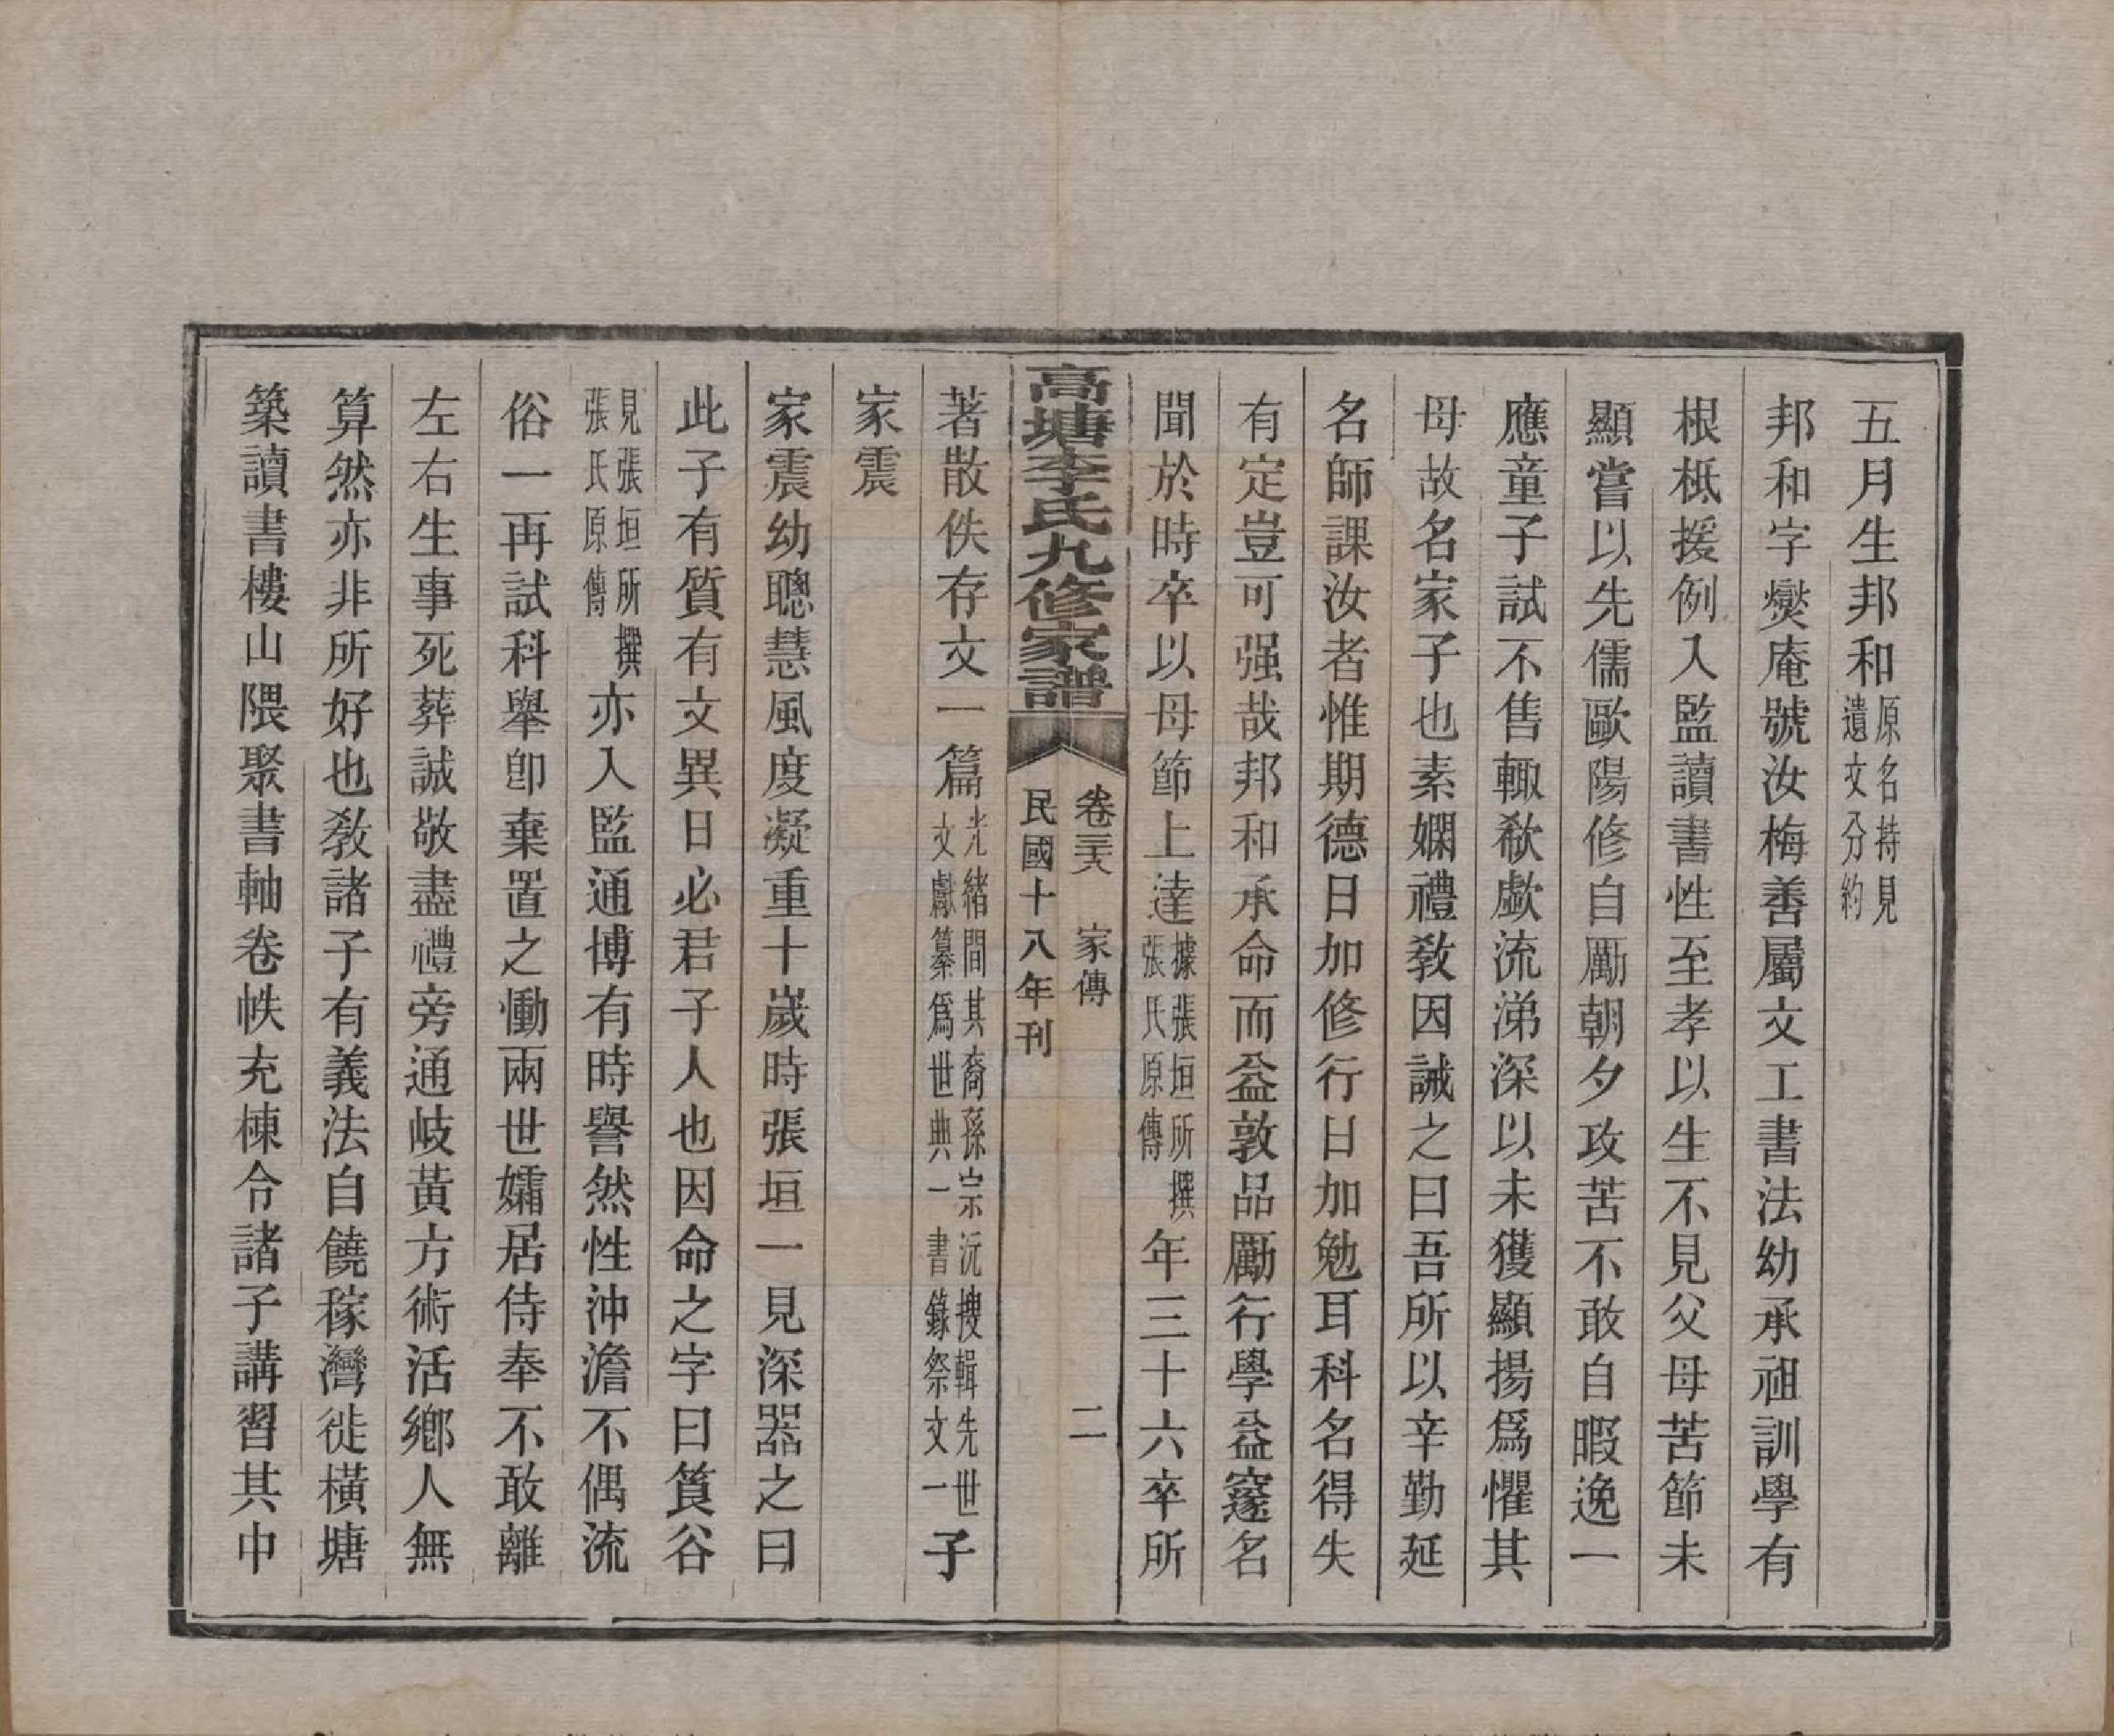 五月生邦和原名持見遺文分約
邦和字爕庵號汝梅善屬文工書法幼承祖訓學有
根柢援例入監讀書性至孝以生不見父母苦節未
顯嘗以先儒歐陽修自勵朝夕攻苦不敢自暇逸一
應童子試不售輙欷歔流涕深以未獲顯揚爲懼其
母故名家子也素嫻禮敎因誡之曰吾所以辛勤延
名師課汝者惟期德日加修行日加勉耳科名得失
有定豈可强哉邦和承命而益敦品勵行學益邃名
聞於時卒以母節上達據張垣所撰張氏原傳年三十六卒所
高塘李氏九修家譜
卷三六 家傳 二
民國十八年刊
著散佚存文一篇光緒間其裔孫宗沅搜輯先世文獻纂爲世典一書錄祭文一子
家震
家震幼聰慧風度凝重十歲時張垣一見深器之曰
此子有質有文異日必君子人也因命之字曰篔谷
見張垣所撰張氏原傳亦入監通博有時譽然性沖澹不偶流
俗一再試科舉卽棄置之慟兩世孀居侍奉不敢離
左右生事死葬誠敬盡禮旁通岐黃方術活鄉人無
算然亦非所好也敎諸子有義法自饒稼灣徙橫塘
築讀書樓山隈聚書軸卷帙充棟令諸子講習其中